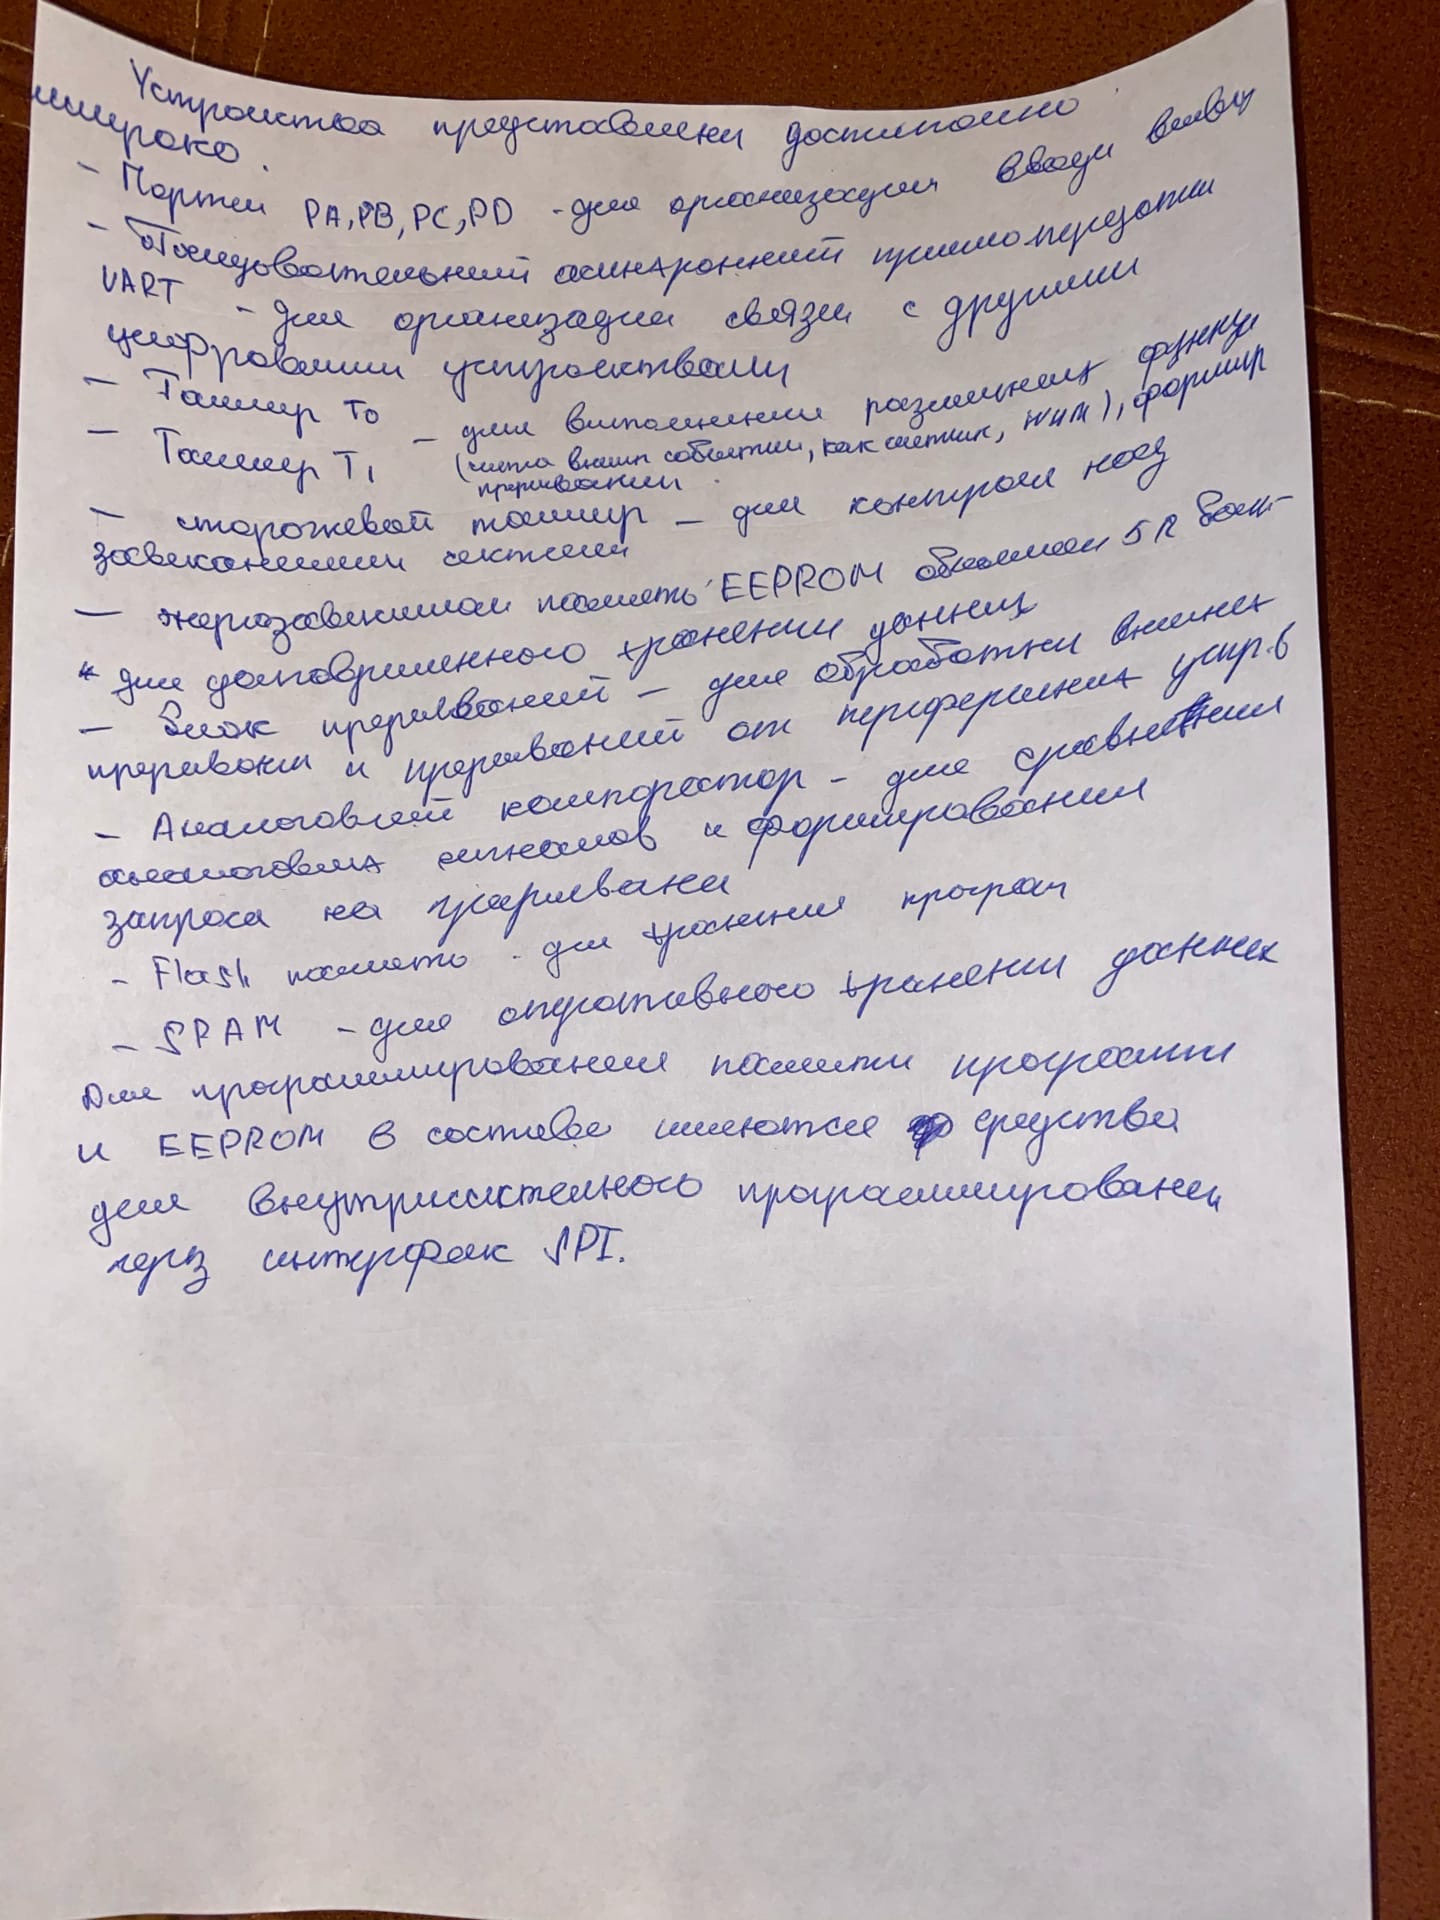 Устройства представлены достаточно
широко.
- Порты PA, PB, PC, PD - для организации ввода вывод
- Последовательный асинхронный приемо передатчи
UART - для организации связи с другими
цифровыми устройствами
- Таймер T0
- Таймер T1 - для выполнения различных функци
(счета внешн событий, как счетчик, ШИМ), формир
прерывании.
- сторожевой таймер - для контроля над
зависаниями системы
- энергозависимая память EEPROM объемом 512 байт
* для долговременного хранения данных
- Блок прерываний - для обработки внешних
прерывани и прерываний от периферийных устр-в
- Аналоговый компоратор - для сравнения
аналоговых сигналов и формирования
запроса на прерывани
- Flash память - для хранения програм
- SRAM - для оперативного хранения данных
Для программирования памяти программ
и EEPROM в составе имеются средства
для внутрисистемного программировани
через интерфейс SPI.